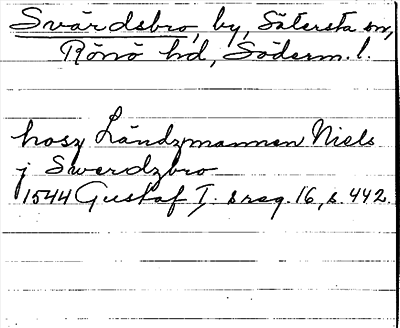 Svärdsbro, by, Sätersta sn,
Rönö hd, Söderm. l.
hosz Ländzmannen Niels
j Swerdzbro
1544 Gustaf I. s reg. 16, s. 442.